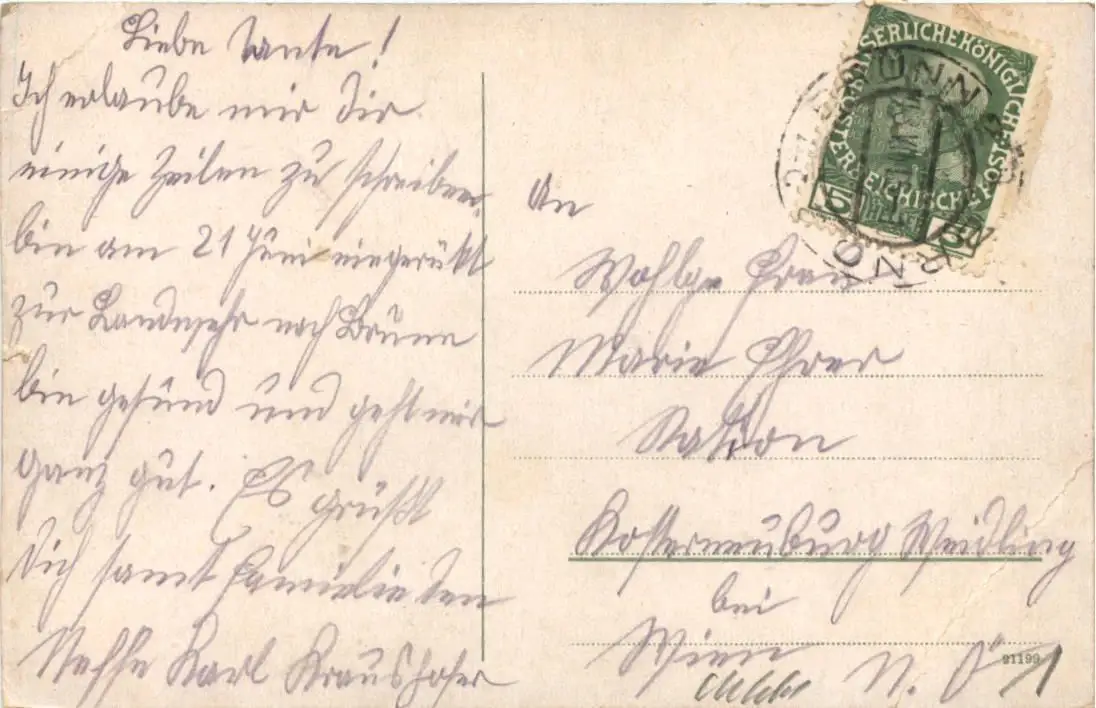 Liebe Tante!
Ich erlaube mir Dir
einige Zeilen zu schreiben,
bin am 21 Juni eingerükt
zur Landwehr nach Brünn
bin gesund und geht mir
ganz gut. Es grüßt
Dich samt Familie den
Neffe Karl Kraushofer
An
Wohlg. Frau
Marie
Station
Kosterneuburg Weidling
bei
Wien N. Ö
KAISERLICHE KÖNIGLICHE ÖSTERREICHISCHE POST
5 5
BRÜNN
BRNO
91199